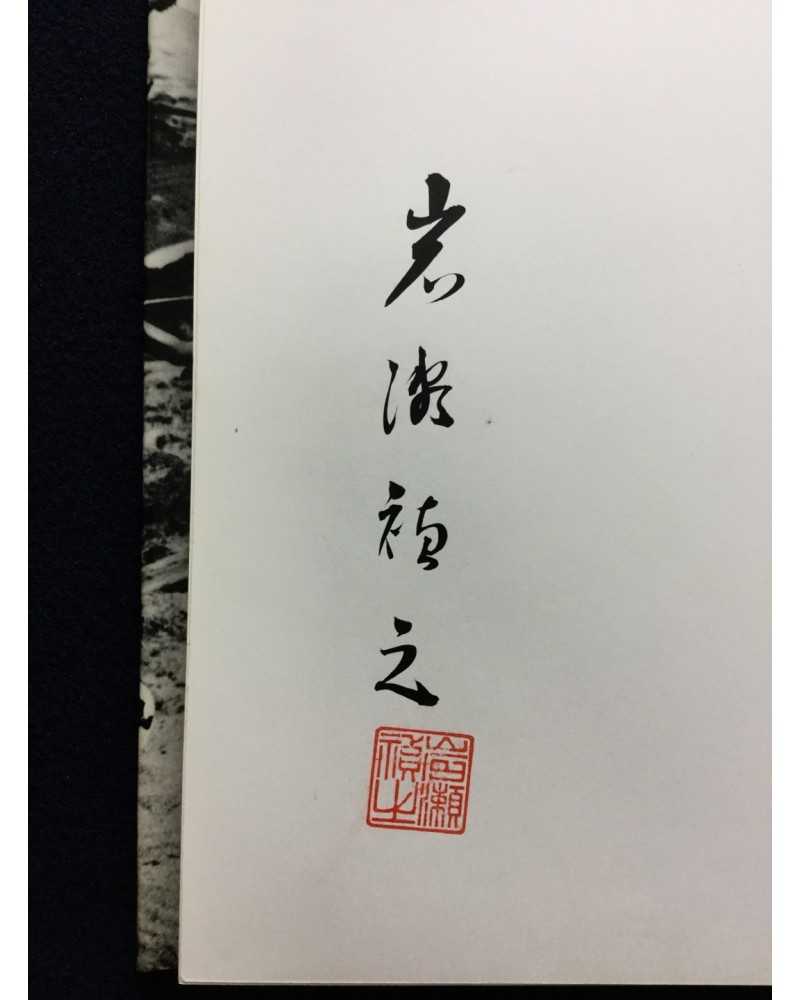 岩瀬禎之
岩瀬禎之